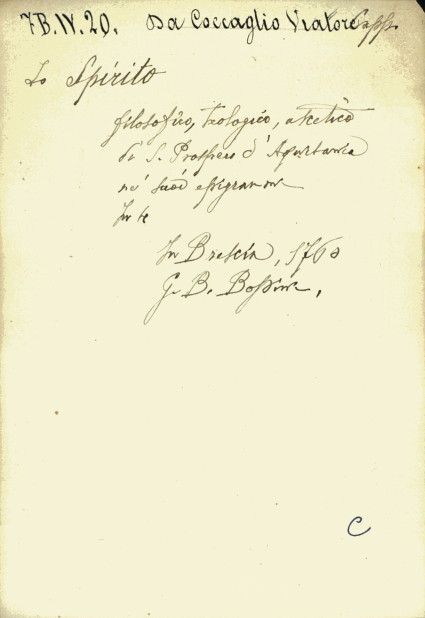 7B.IV.20. Da Coccaglio Viatore Capp.
Lo Spirito
filosofico, teologico, ascetico
di S. Prospero d'Aquitania
ne' suoi epigrammi
In Brescia, 1760
G. B. Bossini,
C